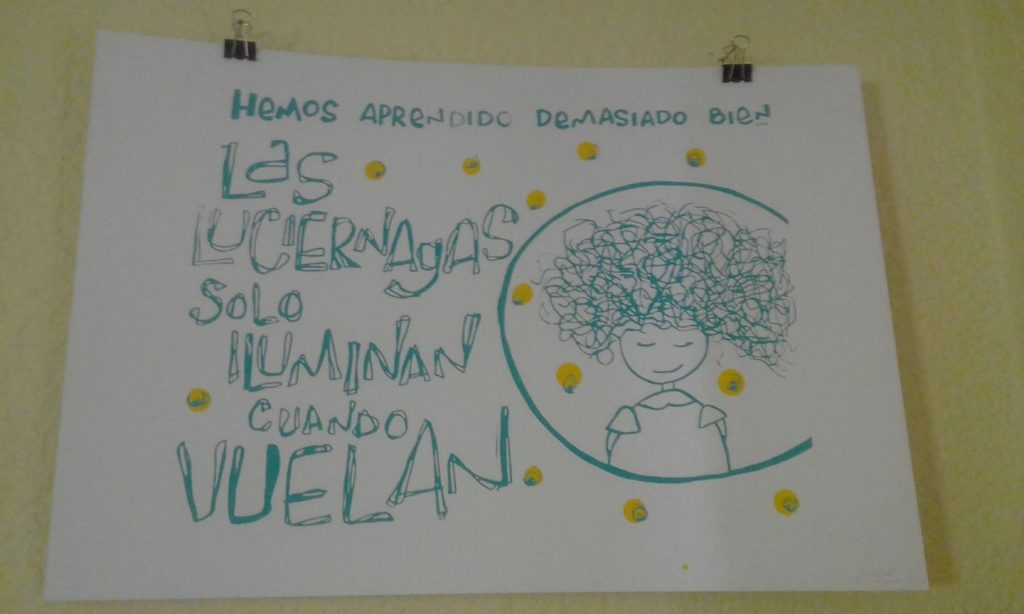 Hemos aprendido demasiado bien
Las
luciernagas
solo
iluminan
cuando
vuelan.